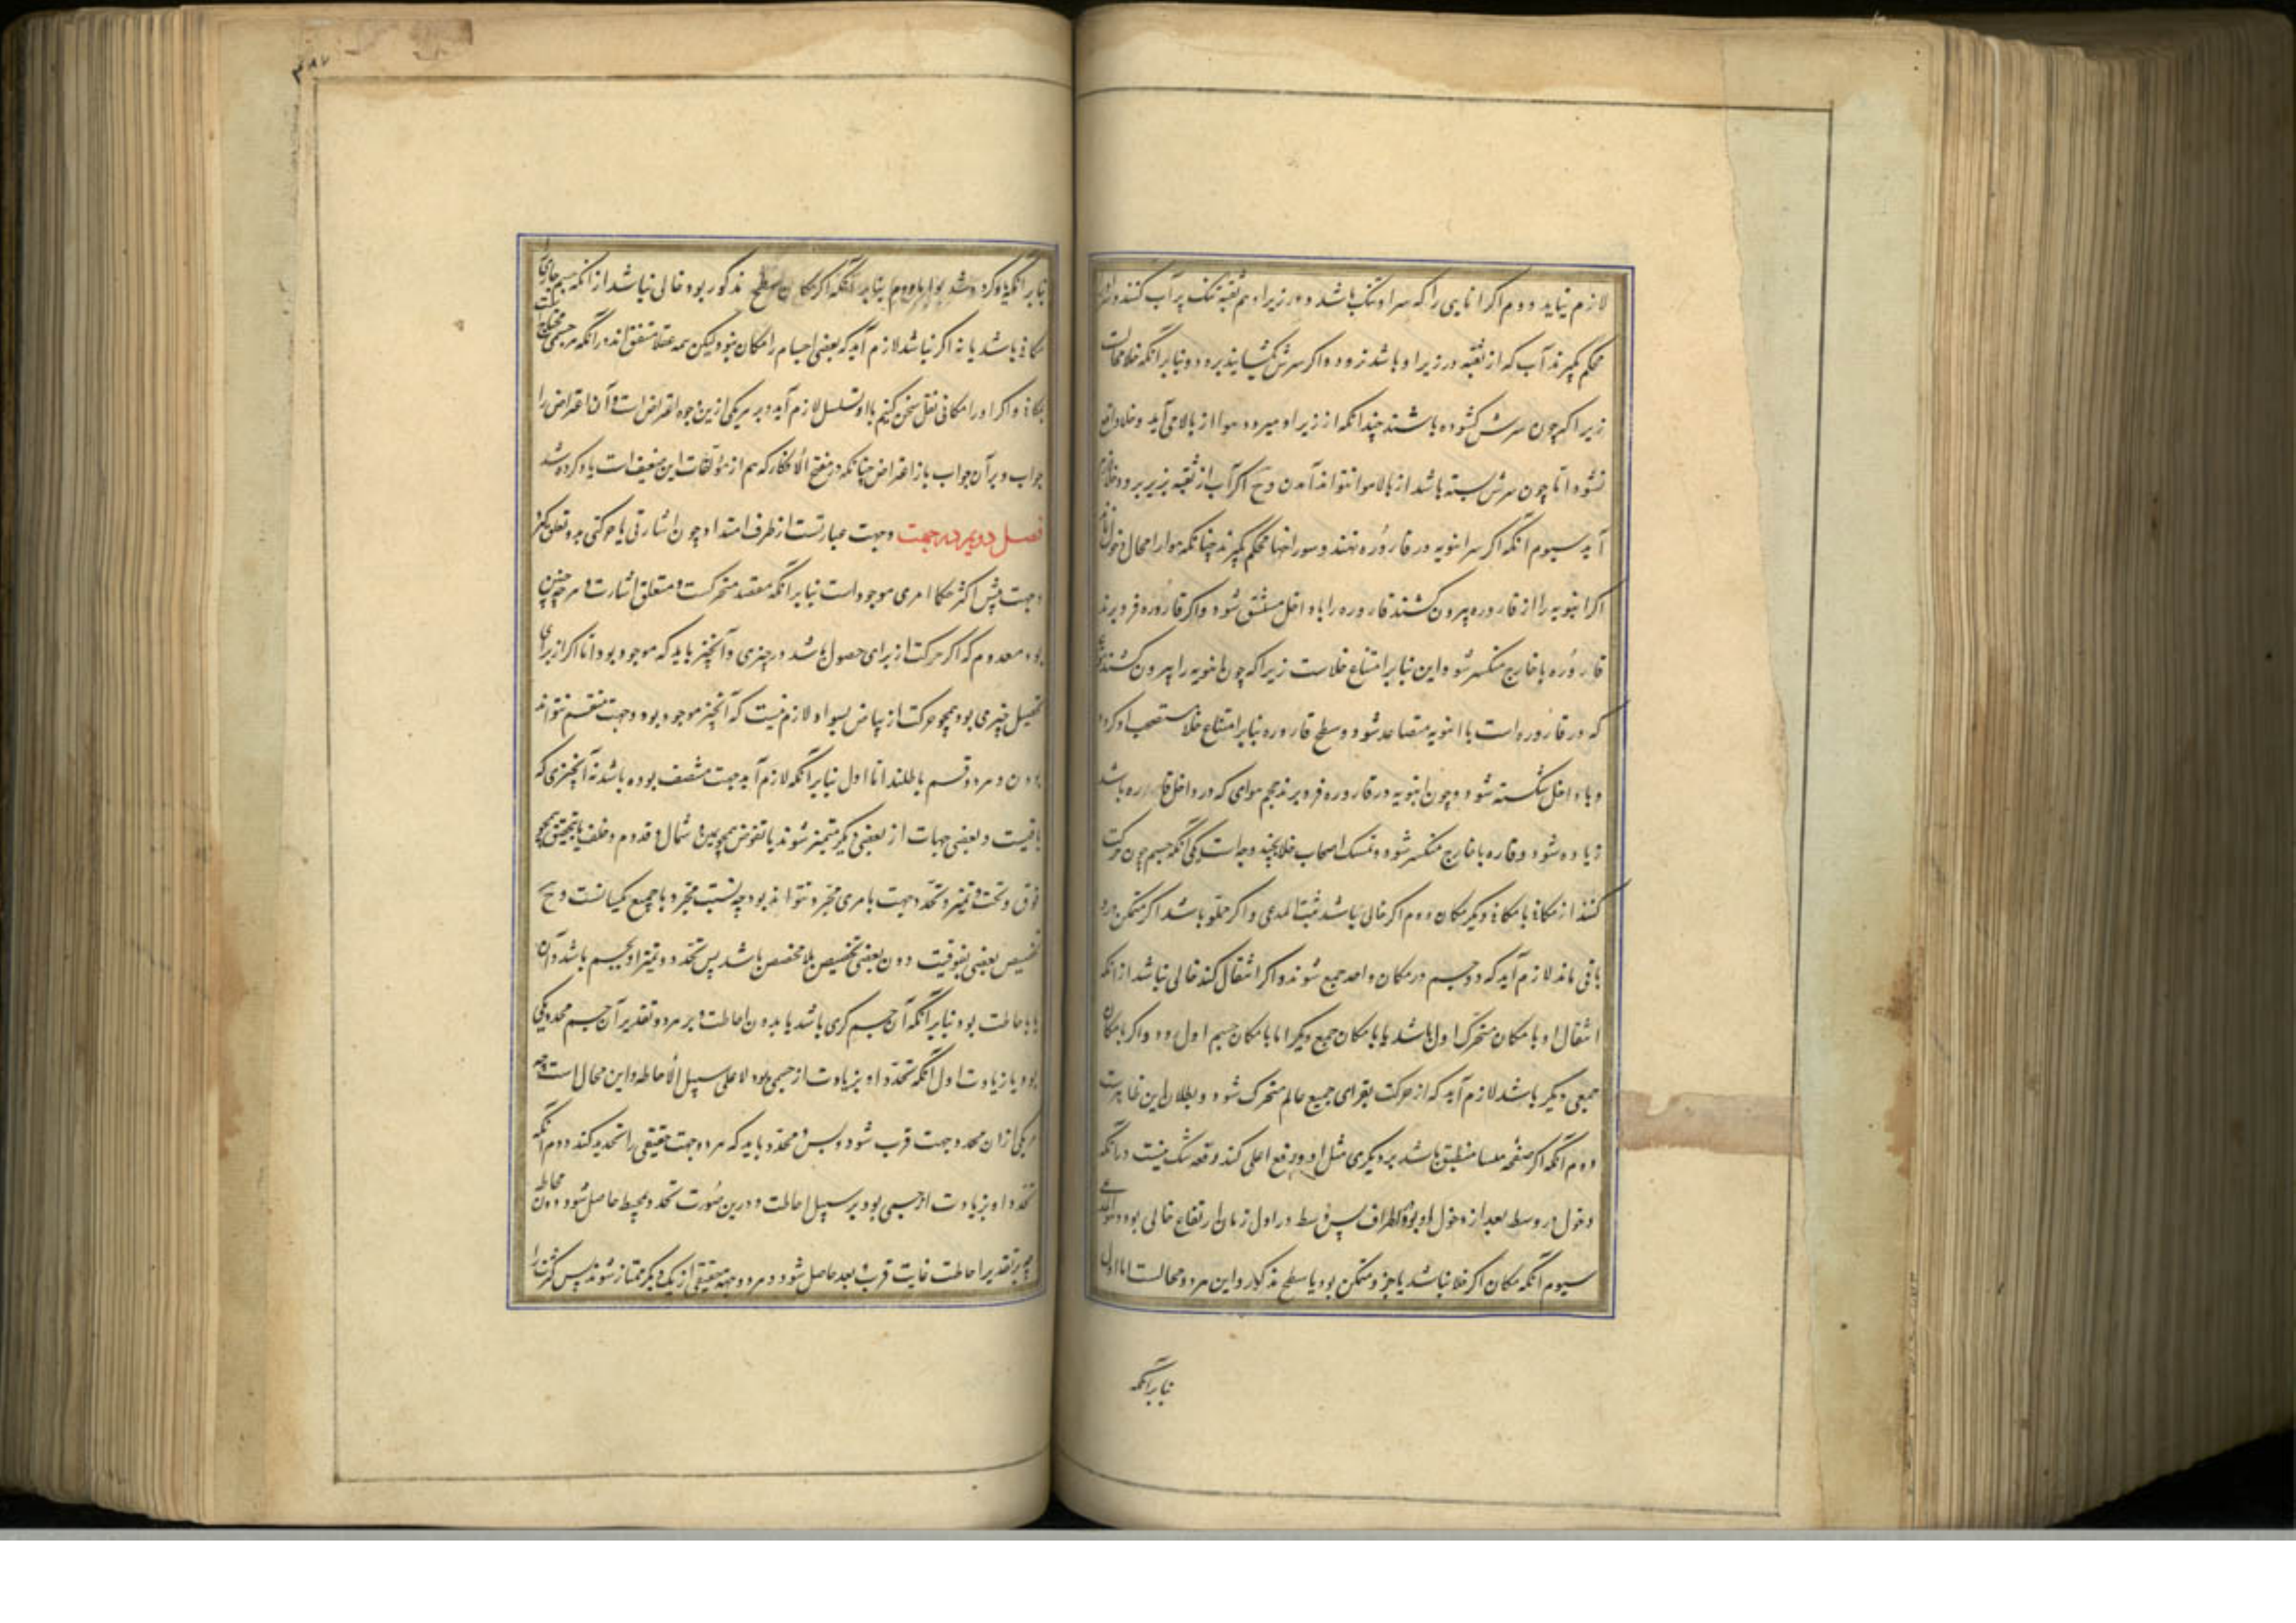 لازم نیاید دوم اگر انایی را که سر او تنک باشد و در زیر او هم ثقبه تنک پر آب کنند و سر او
محکم گیرند آب که از ثقبه در زیر او باشد نرود و اگر سرش بگشایند برود و بنابر آنکه خلا محالست
زیرا که چون سرش گشوده باشند چندانکه از زیر او میرود هوا از بالا می آید و خلا واقع
نشود اما چون سرش بسته باشد از بالا هوا نتواند آمدن و ح اگر آب از ثقبه بزیر برود خلا لازم
آید سیوم آنکه اگر سر انبوبه در قاروره نهند و سوراخها محکم گیرند چنانکه هوا را مجال دخول نماند
اگر انبوبه را از قاروره بیرون کشند قاروره را با داخل منشق شود و اگر قاروره فرو برند
قاروره با خارج منکسر شود و این بنابر امتناع خلاست زیرا که چون انبوبه را بیرون کشند
که در قاروره است با انبوبه متصاعد شود و سطح قاروره بنابر امتناع خلا مستصحب او گردد
و با داخل شکسته شود و چون انبوبه در قاروره فرو برند حجم هوای که در داخل قاروره باشد
زیاده شود و قاروره با خارج منکسر شود و تمسک اصحاب خلا بچند وجه است یکی آنکه جسم چون حرکت
کند از مکانی با مکانی دیگر مکان دوم اگر خالی باشد ثبت المدعی و اگر مملو باشد اگر متمکن درو
باقی ماند لازم آید که دو جسم در مکان واحد جمع شوند و اگر انتقال کند خالی نباشد از آنکه
انتقال او با مکان متحرک اول باشد یا با مکان جمیع دیگر اما با مکان جسم اول دور و اگر با مکان
جمعی دیگر باشد لازم آید که از حرکت بقه‌ای جمیع عالم متحرک شود و بطلان این ظاهرست
دوم آنکه اگر صفحه ملسا منطبق باشد بر دیگری مثل او و رفع اعلی کند دفعه شک نیست در آنکه
دخول در وسط بعد از دخول او بود در اطراف پس وسط در اول زمان ارتفاع خالی بود و هو المدعی
سیوم آنکه مکان اگر خلا نباشد یا جزو متمکن بود یا سطح مذکور و این هر دو محالست اما اول
بنابر آنکه
بنابر آنکه یاد کرده شد و اما دوم بنابر آنکه اگر مکان سطح مذکور بود خالی نباشد از آنکه جسم حاوی را
مکانی باشد یا نه اگر نباشد لازم آید که بعضی اجسام را مکان نبود ولیکن همه عقلا متفق اند در آنکه هر جسمی محتاج است
بمکانی و اگر او را مکانی نقل سخن کنیم با او و تسلسل لازم آید و بر هر یکی ازین وجوه اعتراض است و آن اعتراض را
جواب و بر آن جواب باز اعتراض چنانکه در منتج الافکار که هم از مؤلفات این ضعیف است یاد کرده شد
فصل دویم در جهت و جهت عبارتست از طرف امتداد چون اشارتی یا حرکتی بدو تعلق گیرد
و جهت پیش اکثر حکما امری موجود است بنابر آنکه مقصد متحرکست و متعلق اشارت و هر چه چنین
بود معدوم که اگر حرکت از برای حصول باشد در چیزی و آنچیز باید که موجود بود اما اگر از برای
تحصیل چیزی بود همچو حرکت از بیاض بسواد لازم نیست که آنچیز موجود بود و جهت منقسم نتواند
بودن و هر دو قسم باطلند اما اول بنابر آنکه لازم آید جهت منتصف بوده باشد نه آنچیزی که
باقیست و بعضی جهات از بعضی دیگر متمیز شوند یا بفرض همچو یمین و شمال و قدام و خلف یا بتحقیق همچو
فوق و تحت و تمیز و تحدد جهت بامری مجرد نتواند بود چه نسبت مجرد با جمیع یکسانست و ح
تخصیص بعضی بفوقیت دون بعضی تخصیص بلا مخصص باشد پس تحدد و تمیز او بجسم باشد و آن
یا باحاطت بود بنابر آنکه آن جسم کری باشد یا بدون احاطت و بر هر دو تقدیر آن جسم محدد یکی
بود یا زیادت اول آنکه تحدد او بزیادت از جسمی بود لا علی سبیل الاحاطه و این محالست چه
هر یکی از آن محدد جهت قرب شود و بس و محدد باید که هر دو جهت حقیقی را تحدید کند دوم آنکه
تحدد او بزیادت از جسمی بود بر سبیل احاطت و درین صورت تحدد بمحیط حاصل شود دون محاط
چه بر تقدیر احاطت غایت قرب و بعد حاصل شود و هر دو جهة حقیقی از یکدیگر ممتاز شوند پس کثرت را